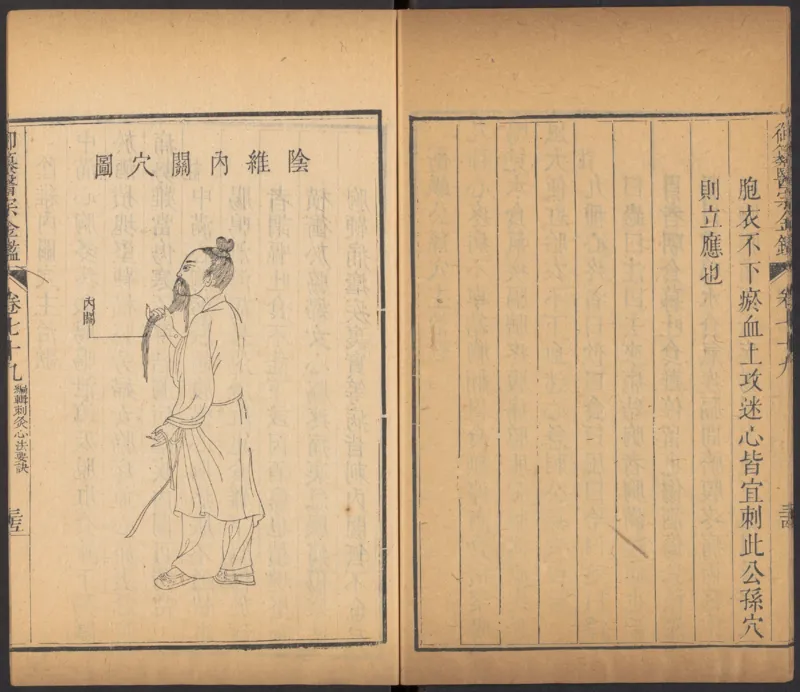 胞衣不下瘀血上攻迷心皆宜刺此公孫穴
則立應也
御纂醫宗金鑑
卷七十九
三十四
陰維內關穴圖
內關
御纂醫宗金鑑
卷七十九
編輯刺灸心法要訣
三十五